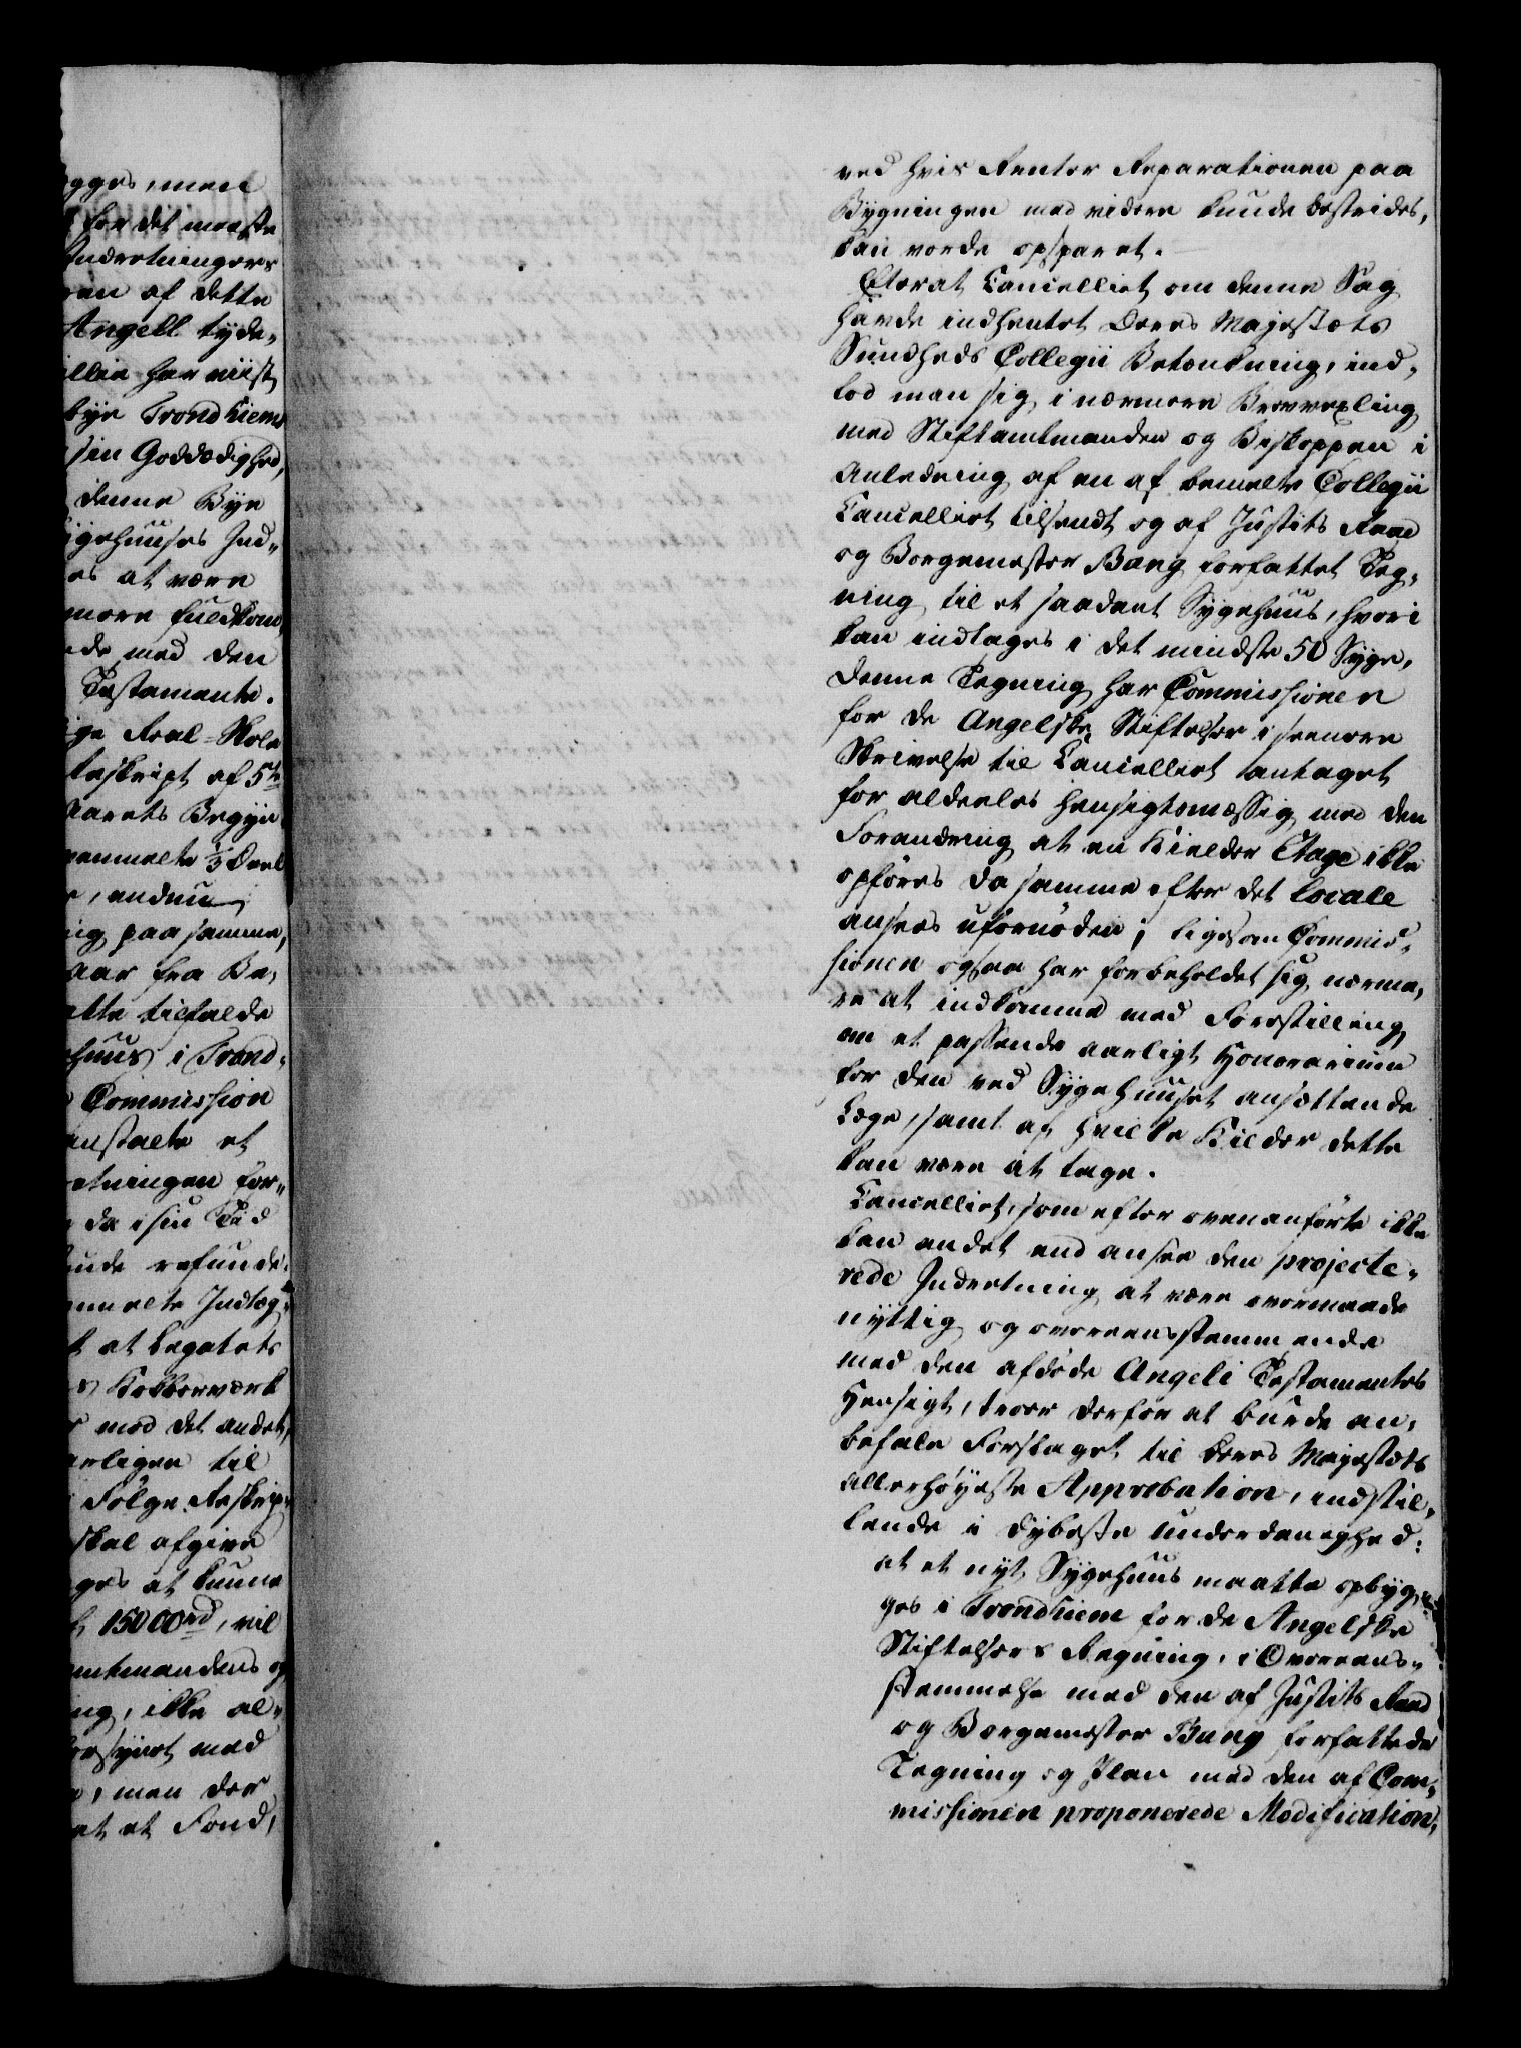 ygges, men
for det meeste
Indretningers
af dette
Angell tyde-
har viist
bye Trondhiem
sin Goddædighed,
denne Bye
Sygehuuses Ind-
es at være
mere fuldkom
de med den
Testamente.
Real-Skole
Reskript af 5te
Aarets Begyn
ommelte 1/3 Deel
e, endnu
paa samme,
Aar fra Be-
tte tilfalde
huus i Trond-
Commission
anstalte et
etningen for-
da i sin Tid
unde refunde-
mmelte Indlæg-
t at Legatets
s Kobberværk
r med det andet,
arligen til
Følge Reskrip-
skal afgive
ges at kunne
15000rd, vil
amtmandens og
ng, ikke al-
forsynet med
, men der
et Fond,
ved hvis Renter Reparationen paa
Bygningen med videre kunde bestrides,
kan vorde opsparet.
Efterat Cancelliet om denne Sag
havde indhentet Deres Majestæts
Sundheds Collegii Betænkning, ind-
lod man sig i nærmere Brevvexling
med Stiftamtmanden og Biskoppen i
Anledning af en af bemelte Collegii
Cancelliet tilsendt og af Justits Raad
og Borgemester Bang forfattet Teg-
ning til et saadant Sygehuus, hvori
kan indtages i det mindste 50 Syge,
denne Tegning har Commissionen
for de Angelske Stiftelser i seenere
Skrivelse til Cancelliet antaget
for aldeeles hensigtsmæssig med den
Forandring at en Kielder Etage ikke
opføres da samme efter det locale
ansees ufornøden; ligesom Commis-
sionen ogsaa har forbeholdet sig nærme-
re at indkomme med Forestilling
om et passende aarligt Honorarium
for den ved Sygehuuset ansættende
Læge, samt af hvilke Kilder dette
kan være at tage.
Cancelliet, som efter ovenanførte ikke
kan andet end ansee den projecte-
rede Indretning at være overmaade
nyttig og overeensstemmende
med den afdøde Angels Testamentes
Hensigt, troer derfor at burde an-
befale Forslaget til Deres Majestæts
allerhøyeste Approbation, indstil-
lende i dybeste Underdanighed:
at et nyt Sygehuus maatte opbyg-
ges i Trondhiem for de Angelske
Stiftelsers Regning, i Overeens-
stemmelse med den af Justits Raad
og Borgemester Bang forfattede
Tegning og Plan med den af Com-
missionen proponerede Modification,